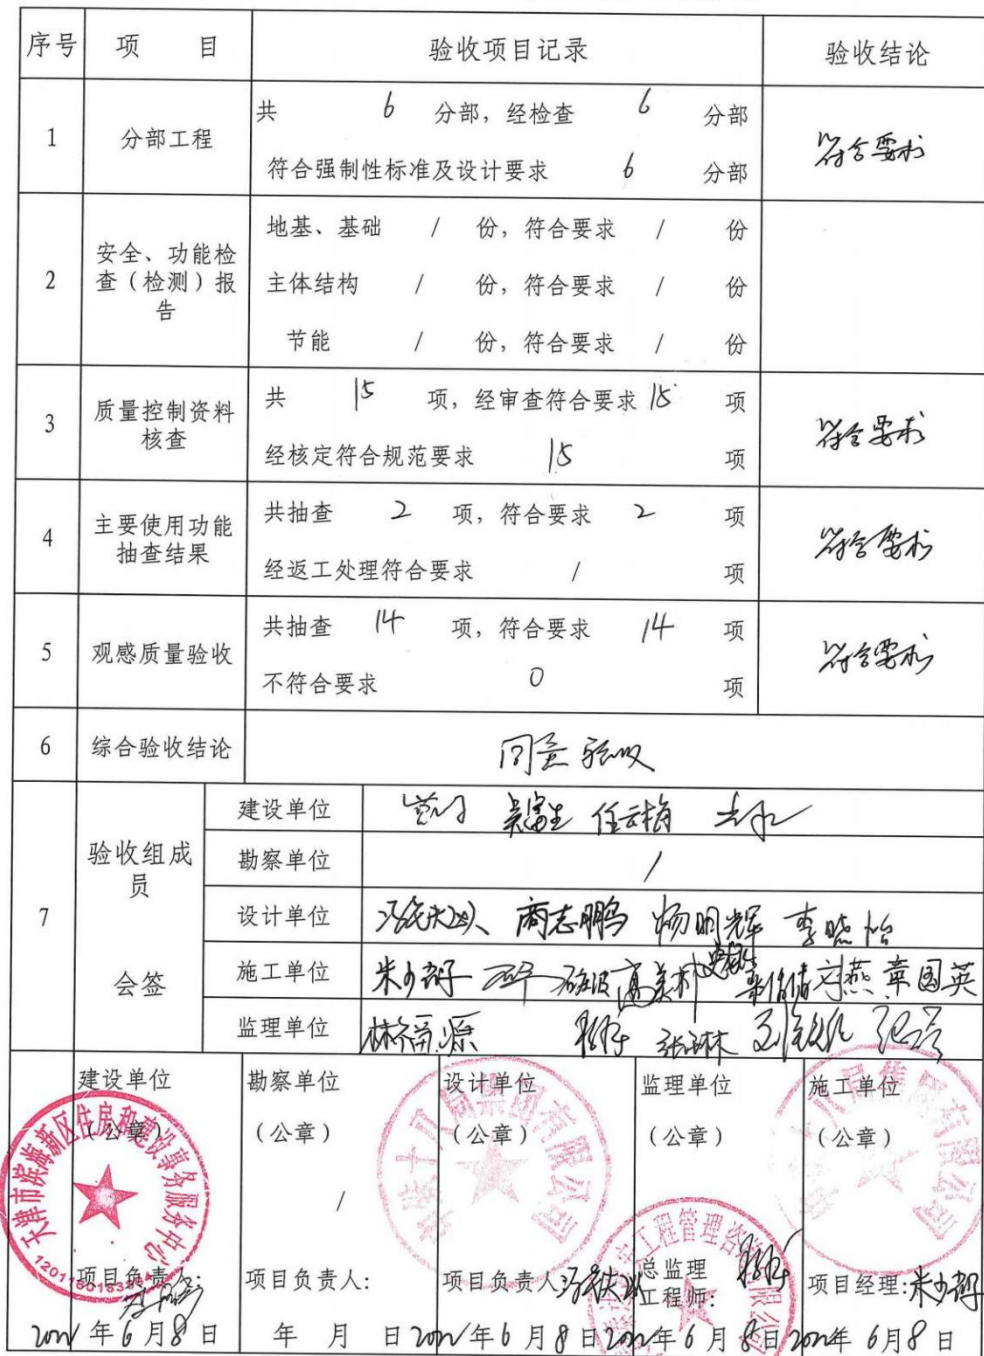 序号 项 目 验收项目记录 验收结论
1 分部工程 共 6 分部，经检查 6 分部
符合强制性标准及设计要求 6 分部
符合要求
2 安全、功能检查（检测）报告
地基、基础 / 份，符合要求 / 份
主体结构 / 份，符合要求 / 份
节能 / 份，符合要求 / 份
3 质量控制资料核查
共 15 项，经审查符合要求 15 项
经核定符合规范要求 15 项
符合要求
4 主要使用功能抽查结果
共抽查 2 项，符合要求 2 项
经返工处理符合要求 / 项
符合要求
5 观感质量验收
共抽查 14 项，符合要求 14 项
不符合要求 0 项
符合要求
6 综合验收结论 同意验收
7 验收组成员 会签
建设单位 吴富生 任云梅
勘察单位 /
设计单位 商志鹏 杨明辉 李晓怡
施工单位 高美村 刘燕 章国英
监理单位 林福源
建设单位 勘察单位 设计单位 监理单位 施工单位
（公章） （公章） （公章） （公章） （公章）
天津市滨海新区住房和建设事务服务中心
/
项目负责人: 项目负责人: 项目负责人: 总监理工程师: 项目经理:
年6月8日 年 月 日 年6月8日 年6月8日 年6月8日